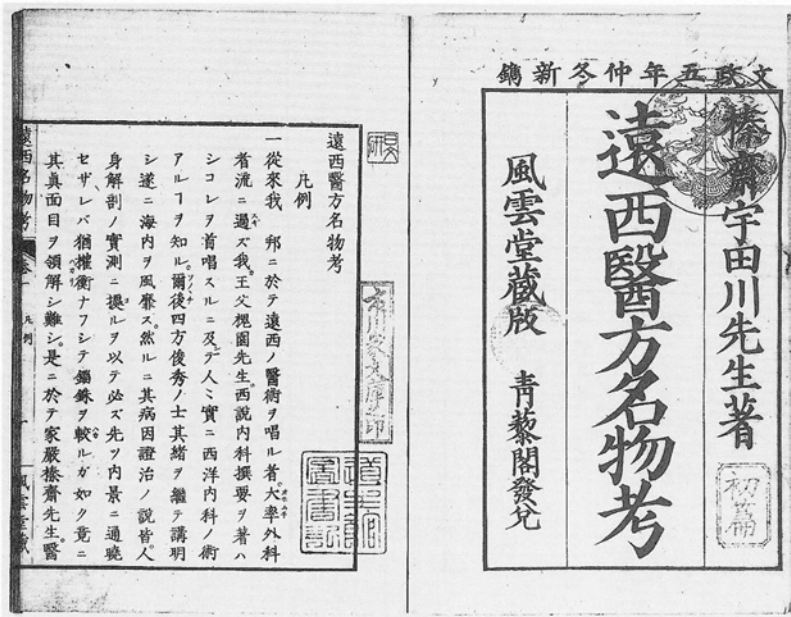 文政五年仲冬新鐫
榛齋宇田川先生著
初篇
遠西醫方名物考
風雲堂藏版 青藜閣發兌
遠西醫方名物考
凡例
一從來我 邦ニ於テ遠西ノ醫術ヲ唱ル者大率外科
者流ニ過ズ我王父槐園先生西説内科撰要ヲ著ハ
シコレヲ首唱スルニ及テ人々實ニ西洋内科ノ術
アルヿヲ知ル爾後四方俊秀ノ士其緒ヲ繼テ講明
シ遂ニ海内ヲ風靡ス然ルニ其病因證治ノ説皆人
身解剖ノ實測ニ據ルヲ以テ必ズ先ツ内景ニ通曉
セザレバ猶權衡ナフシテ錙銖ヲ較ルガ如ク竟ニ
其眞面目ヲ領解シ難シ是ニ於テ家嚴榛齋先生醫
遠西名物考 卷一 凡例 一 風雲堂藏